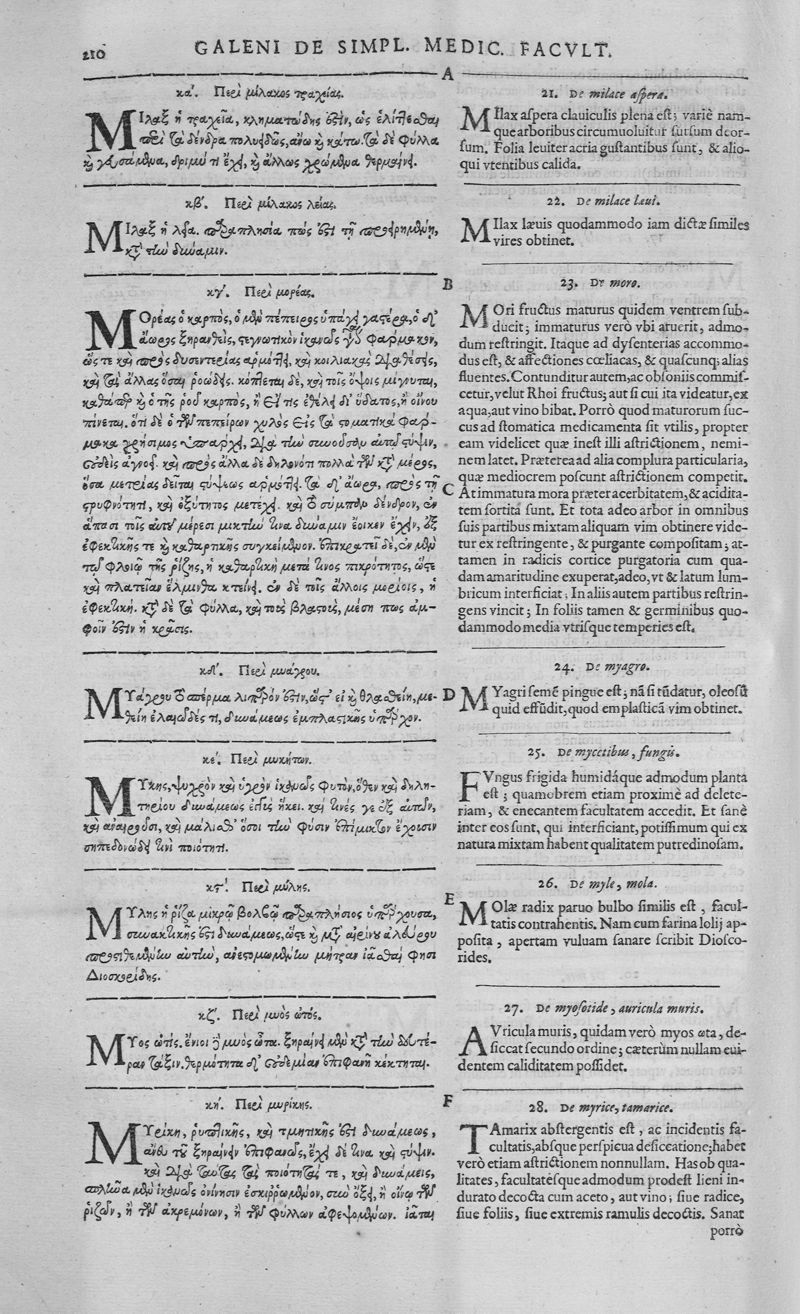 210 GALENI DE SIMPL. MEDIC. FACVLT.
κα΄. Περὶ μίλακος τραχείας.
ΜΙλαξ ἡ τραχεῖα, κληματώδης ἐστὶν, ὡς ἑλίττεσθαι
περὶ τὰ δένδρα πολυειδῶς, ἄνω καὶ κάτω. τὰ δὲ φύλλα
καὶ γευσάμενα, δριμύ τι ἔχει, καὶ ἄλλως χρώμενα θερμαίνει.
κβ΄. Περὶ μίλακος λείας.
ΜΙλαξ ἡ λεία. παραπλησία πώς ἐστι τῇ προειρημένῃ,
κατὰ τὴν δύναμιν.
κγ΄. Περὶ μορέας.
ΜΟρέας ὁ καρπὸς, ὁ μὲν πέπειρος ὑπάγει γαστέρα, ὁ δ'
ἄωρος ξηρανθεὶς, στεγνωτικὸν ἱκανῶς γίνεται φάρμακον,
ὥς τε καὶ πρὸς δυσεντερίας ἁρμόττει, καὶ κοιλιακὰς διαθέσεις,
καὶ τὰς ἄλλας ὅσαι ῥοώδεις. κόπτεται δὲ, καὶ τοῖς ὄψοις μίγνυται,
καθάπερ καὶ ὁ τῆς ροῦ καρπὸς, ἢ εἴ τις ἐθέλει δι' ὕδατος, ἢ οἴνου
πίνεται. ὅτι δὲ ὁ τῶν πεπείρων χυλὸς εἰς τὰ στοματικὰ φάρ-
μακα χρήσιμος ὑπάρχει, διὰ τὴν συνοῦσαν αὐτῷ στύψιν,
οὐδεὶς ἀγνοεῖ. καὶ πρὸς ἄλλα δὲ δηλονότι πολλὰ τῶν κατὰ μέρος,
ὅσα μετρίας δεῖται στύψεως ἁρμόττει. τὰ δ' ἄωρα, πρὸς τῇ
στρυφνότητι, καὶ ὀξύτητος μετέχει. καὶ τὸ σύμπαν δένδρον, ἐν
ἅπασι τοῖς αὐτοῦ μέρεσι μικτήν τινα δύναμιν ἔοικεν ἔχειν, ἐξ
ἐφεκτικῆς τε καὶ καθαρτικῆς συγκείμενον. ἐπικρατεῖ δὲ, ἐν μὲν
τῷ φλοιῷ τῆς ῥίζης, ἡ καθαρτικὴ μετά τινος πικρότητος, ὥστε
καὶ πλατεῖαν ἕλμινθα κτείνει. ἐν δὲ τοῖς ἄλλοις μορίοις, ἡ
ἐφεκτική. κατὰ δὲ τὰ φύλλα, καὶ τοὺς βλαστοὺς, μέση πως ἀμ-
φοῖν ἐστὶν ἡ κρᾶσις.
κδ΄. Περὶ μυάγρου.
ΜΥάγρου τὸ σπέρμα λιπαρόν ἐστιν, ὥστ' εἰ καὶ θλασθείη, με-
θείη ἐλαιῶδές τι, δυνάμεως ἐμπλαστικῆς ὑπάρχον.
κε΄. Περὶ μυκήτων.
ΜΥκης, ψυχρὸν καὶ ὑγρὸν ἱκανῶς φυτὸν, ὅθεν καὶ δηλη-
τηρίου δυνάμεως ἐγγὺς ἥκει. καὶ τινές γε ἐξ αὐτῶν,
καὶ ἀναιροῦσι, καὶ μάλισθ' ὅσοι τὴν φύσιν ἐπίμικτον ἔχουσιν
σηπεδονώδει τινὶ ποιότητι.
κστ΄. Περὶ μύλης.
ΜΥλης ἡ ῥίζα μικρῷ βολβῷ παραπλήσιος ὑπάρχουσα,
συνακτικῆς ἐστὶ δυνάμεως, ὥστε καὶ μετὰ αἰρίνου ἀλεύρου
προστιθεμένην αὐτὴν, ἀνεστομωμένην μήτραν ἰᾶσθαί φησι
Διοσκορίδης.
κζ΄. Περὶ μυὸς ὠτός.
ΜΥος ὠτίς. ἔνιοι δὲ μυὸς ὦτα. ξηραίνει μὲν κατὰ τὴν δευτέ-
ραν τάξιν. θερμότητα δ' οὐδεμίαν ἐπιφανῆ κέκτηται.
κη΄. Περὶ μυρίκης.
ΜΥρίκη, ῥυπτικῆς, καὶ τμητικῆς ἐστὶ δυνάμεως,
ἄνευ τοῦ ξηραίνειν ἐπιφανῶς, ἔχει δέ τινα καὶ στύψιν.
καὶ διὰ ταύτας τὰς ποιότητάς τε, καὶ δυνάμεις,
σπλῆνα μὲν ἱκανῶς ὀνίνησιν ἐσκιρρωμένον, σὺν ὄξει, ἢ οἴνῳ τῶν
ῥιζῶν, ἢ τῶν ἀκρεμόνων, ἢ τῶν φύλλων ἀφεψομένων. ἰᾶται
A
B
C
D
E
F
21. De milace aspera.
MIlax aspera clauiculis plena est; variè nam-
que arboribus circumuoluitur sursum deor-
sum. Folia leuiter acria gustantibus sunt, & alio-
qui vtentibus calida.
22. De milace laeui.
MIlax læuis quodammodo iam dictæ similes
vires obtinet.
23. De moro.
MOri fructus maturus quidem ventrem sub-
ducit; immaturus verò vbi aruerit, admo-
dum restringit. Itaque ad dysenterias accommo-
dus est, & affectiones cœliacas, & quascunq; alias
fluentes. Contunditur autem, ac obsoniis commis-
cetur, velut Rhoi fructus; aut si cui ita videatur, ex
aqua, aut vino bibat. Porrò quod maturorum suc-
cus ad stomatica medicamenta sit vtilis, propter
eam videlicet quæ inest illi astrictionem, nemi-
nem latet. Præterea ad alia complura particularia,
quæ mediocrem poscunt astrictionem competit.
At immatura mora præter acerbitatem, & acidita-
tem sortita sunt. Et tota adeo arbor in omnibus
suis partibus mixtam aliquam vim obtinere vide-
tur ex restringente, & purgante compositam; at-
tamen in radicis cortice purgatoria cum qua-
dam amaritudine exuperat, adeo, vt & latum lum-
bricum interficiat; In aliis autem partibus restrin-
gens vincit; In foliis tamen & germinibus quo-
dammodo media vtrisque temperies est.
24. De myagro.
MYagri semẽ pingue est; nã si tũdatur, oleosũ
quid effũdit, quod emplasticã vim obtinet.
25. De mycetibus, fungis.
FVngus frigida humidáque admodum planta
est; quamobrem etiam proximè ad delete-
riam, & enecantem facultatem accedit. Et sanè
inter eos sunt, qui interficiant, potissimum qui ex
natura mixtam habent qualitatem putredinosam.
26. De myle, mola.
MOlæ radix paruo bulbo similis est, facul-
tatis contrahentis. Nam cum farina lolij ap-
posita, apertam vuluam sanare scribit Diosco-
rides.
27. De myosotide, auricula muris.
AVricula muris, quidam verò myos ωta, de-
siccat secundo ordine; cæterùm nullam eui-
dentem caliditatem possidet.
28. De myrice, tamarice.
TAmarix abstergentis est, ac incidentis fa-
cultatis, absque perspicua desiccatione; habet
verò etiam astrictionem nonnullam. Has ob qua-
litates, facultatésque admodum prodest lieni in-
durato decocta cum aceto, aut vino; siue radice,
siue foliis, siue extremis ramulis decoctis. Sanat
porrò